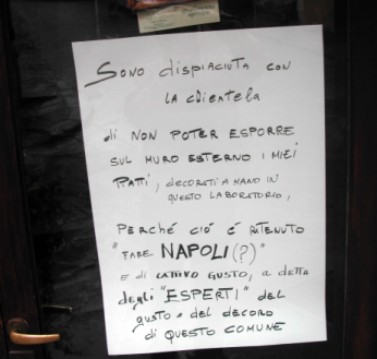 Sono dispiaciuta con
la clientela
di non poter esporre
sul muro esterno i miei
piatti, decorati a mano in
questo laboratorio,
perché ciò é ritenuto
"fare NAPOLI (?)"
e di cattivo gusto, a detta
degli "ESPERTI" del
gusto e del decoro
di questo comune